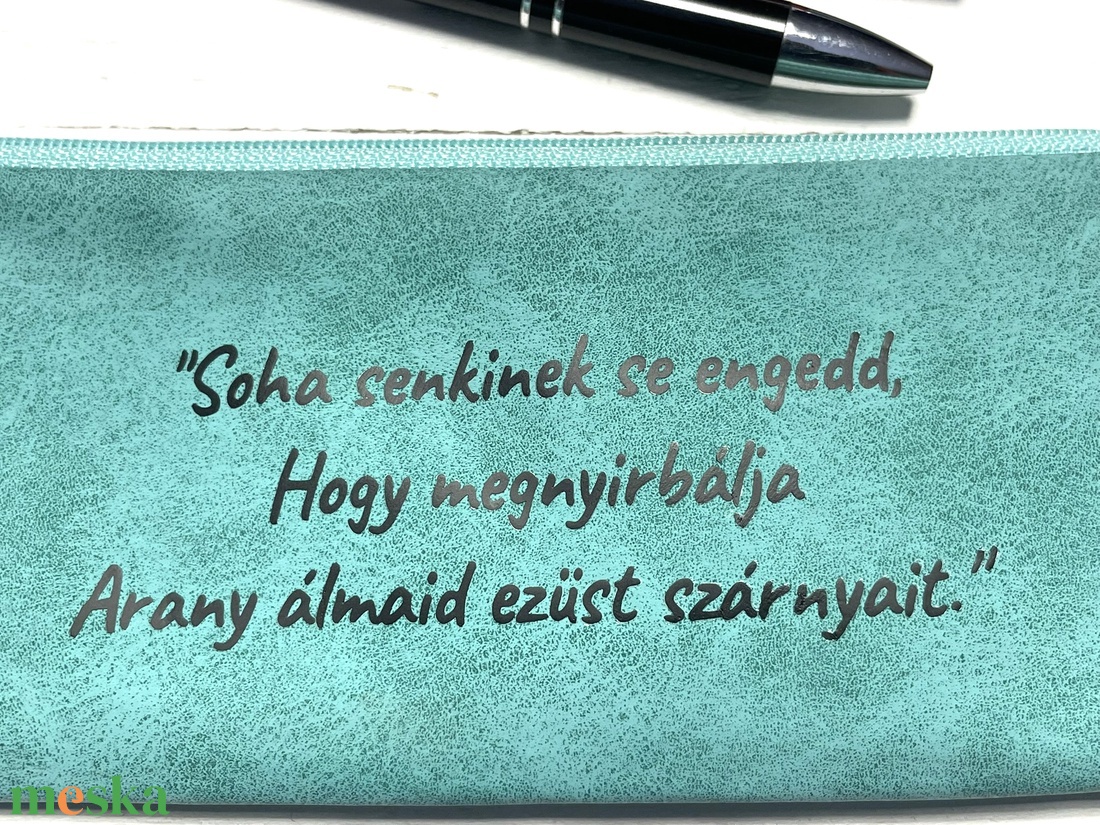 "Soha senkinek se engedd,
Hogy megnyirbálja
Arany álmaid ezüst szárnyait."
meska